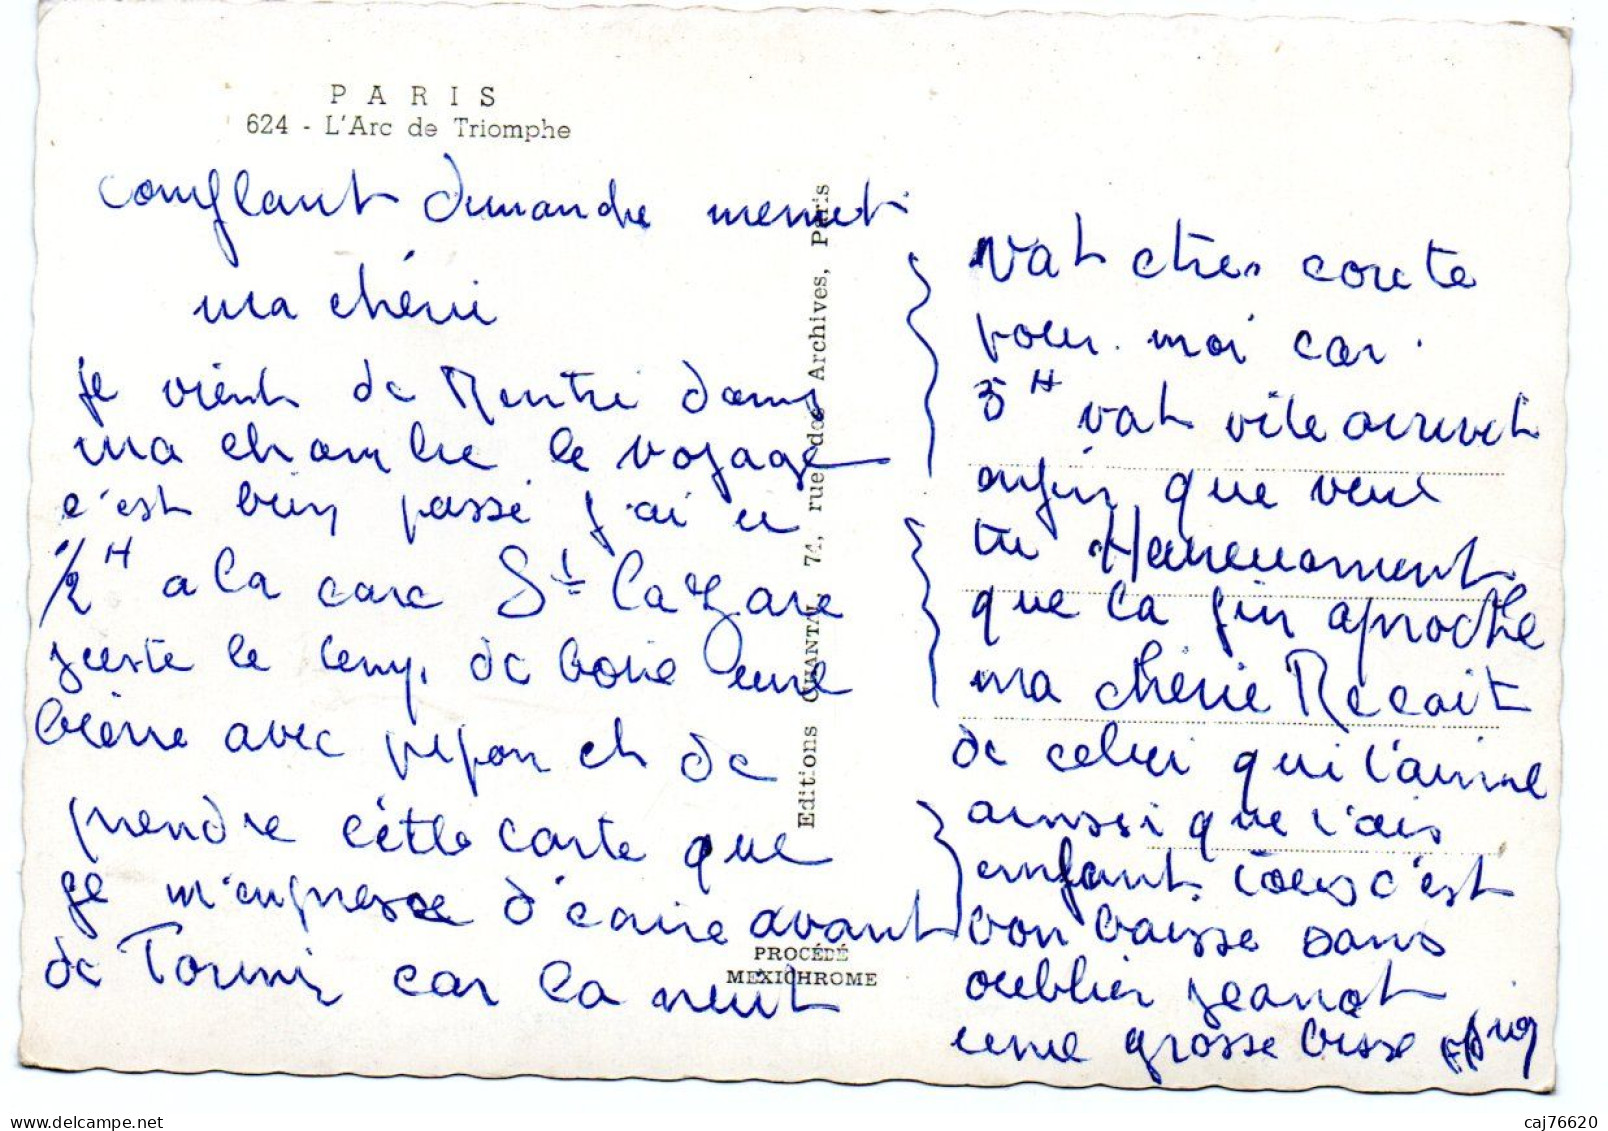 PARIS
624 - L'Arc de Triomphe
conflant dimanche menuet
ma chérie
je vient de Rentré dans
ma chambre le voyage
c'est bien passé j'ai u
1/2 H a la care St lazare
juste le temp. de boire une
bierre avec pepon et de
prendre cétte carte que
je m'enpresse d'écrire avant
de Tormir car la nuit
Editions CHANTAL, 74, rue des Archives, Paris
PROCÉDÉ
MEXICHROME
vat etres courte
pour moi car
5 H vat vite arrivet
enfin que veux
tu Hereuesment
que la fin aproche
ma chérie Recoit
de celui qui t'aime
ainssi que t'ais
enfant tous c'est
bon baisse sans
oublier jeanot
une grosse bisse
Delcampe.net
caj76620